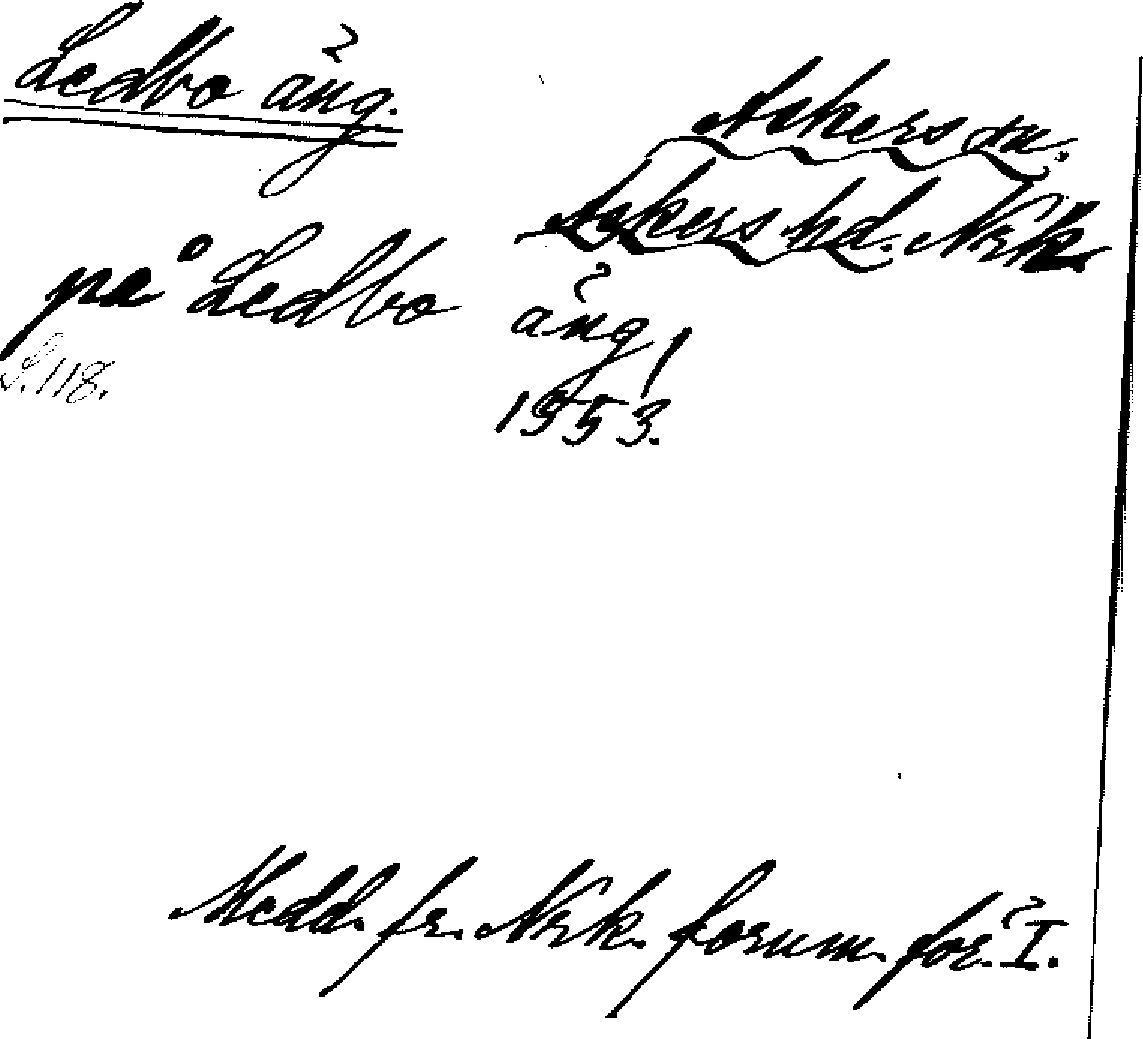 Ledbo äng.
Askers sn.
Askers hd. Nrk.
på Ledbo äng!
S. 118.
1953.
Medd. fr. Nrk. fornm. för. I.